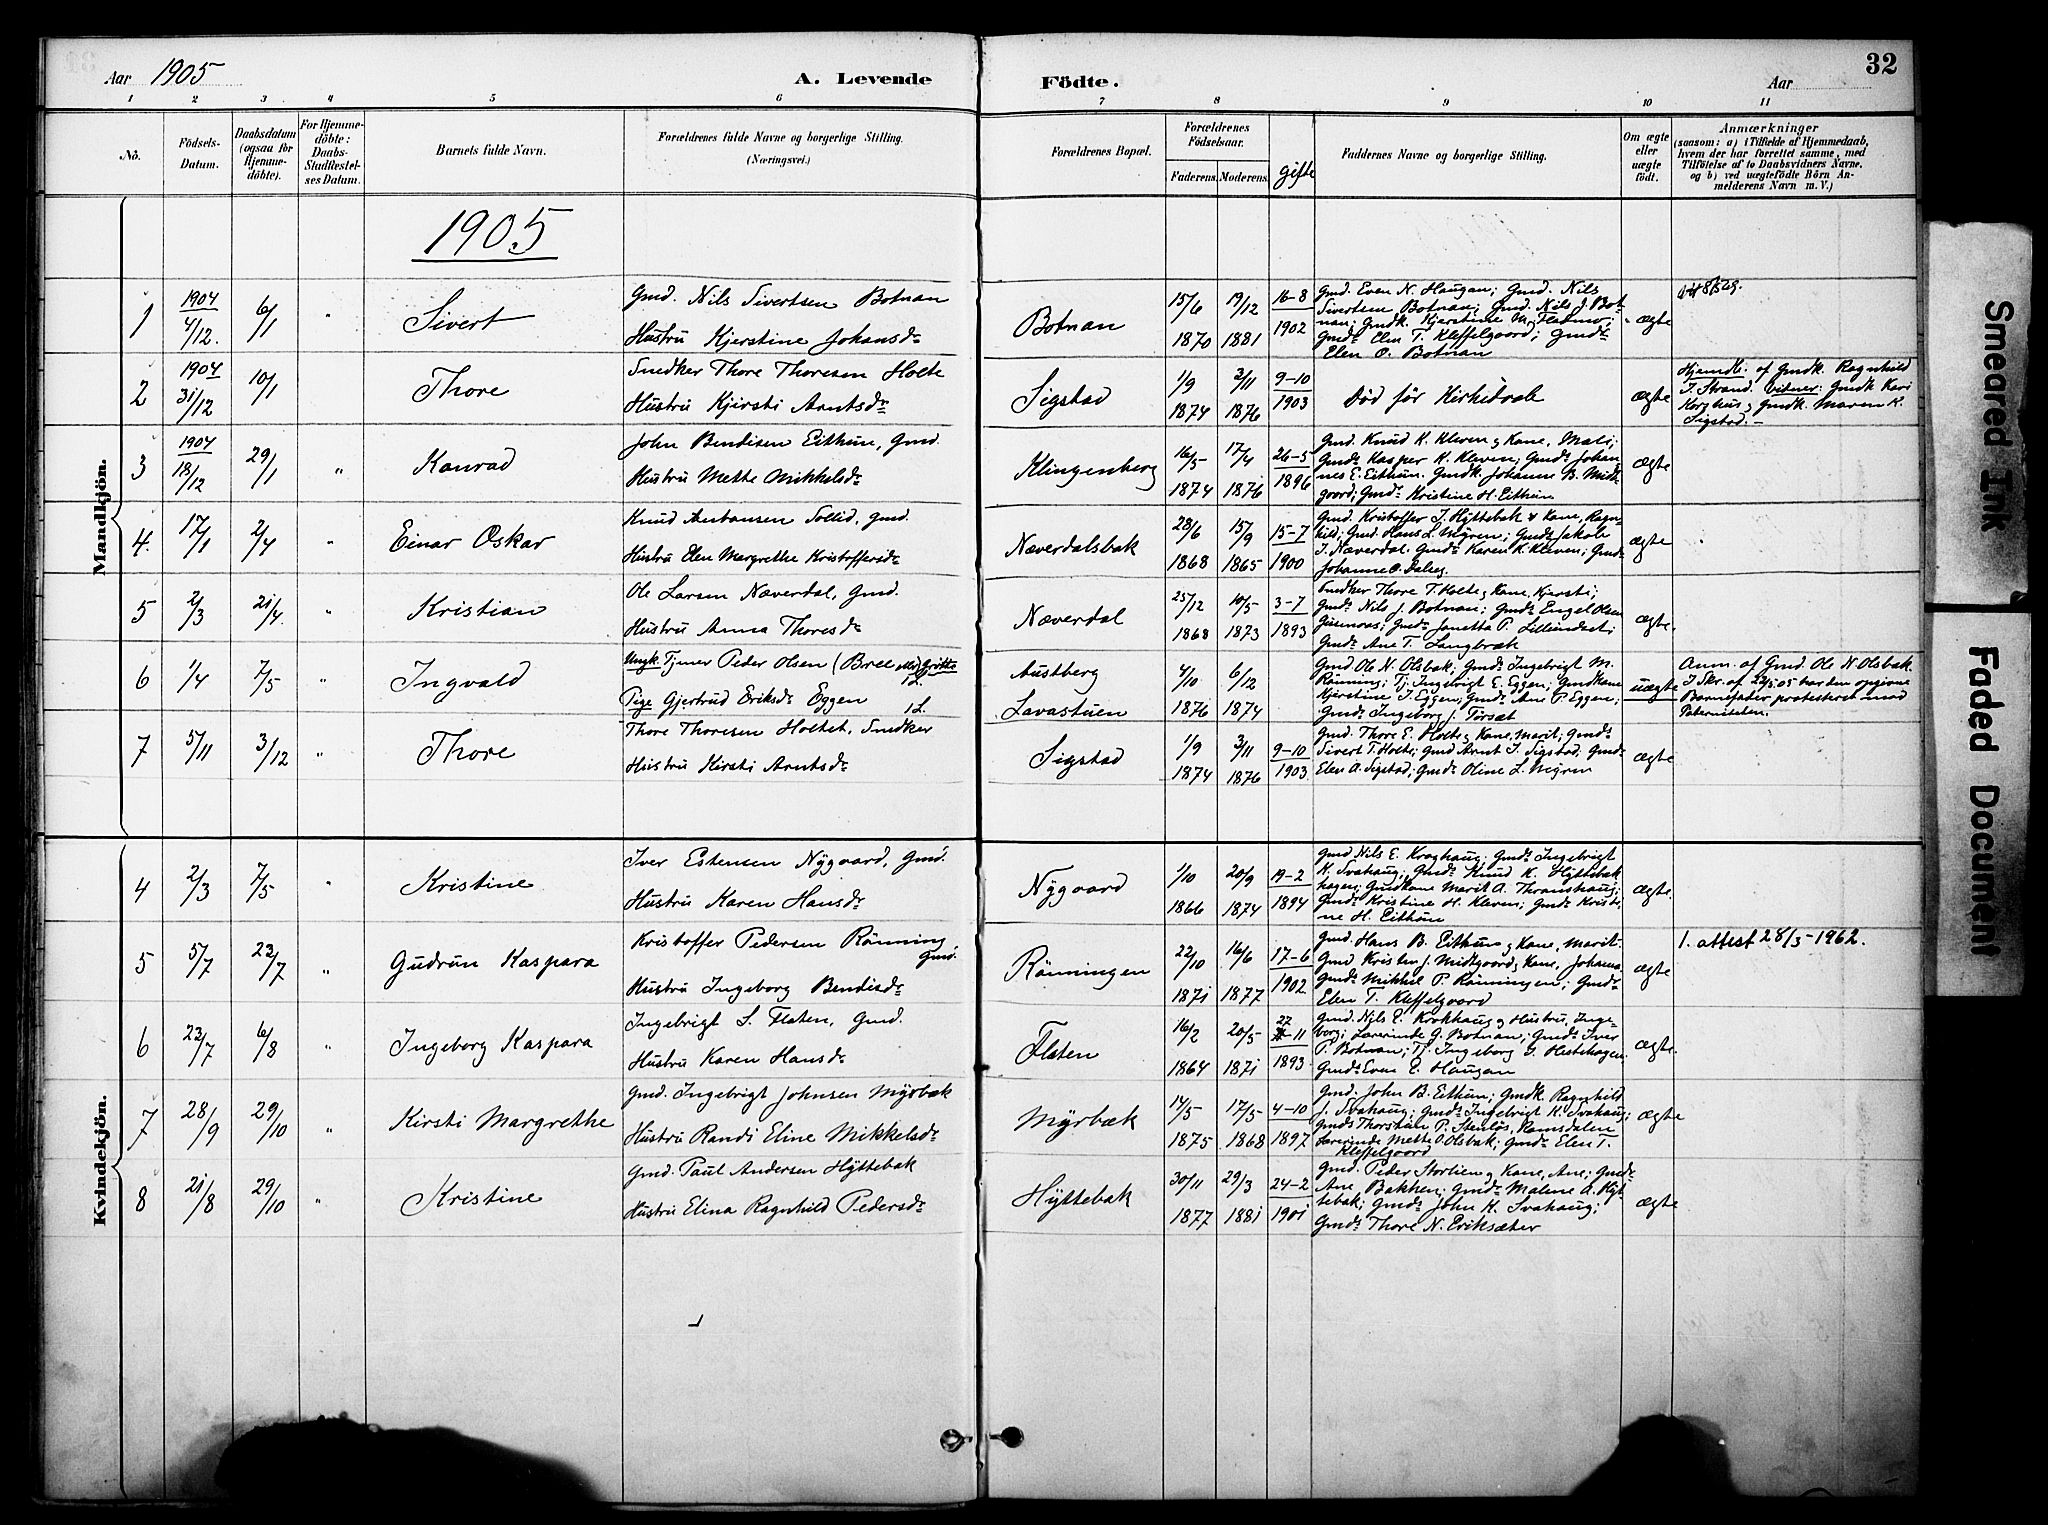 Aar 1905
A. Levende
Födte.
Aar
32
1 2 3 4 5 6 7 8 9 10 11
No.
Födsels-Datum.
Daabsdatum (ogsaa for Hjemme-döbte).
For Hjemme-döbte: Daabs-Stadfæstel-ses Datum.
Barnets fulde Navn.
Forældrenes fulde Navne og borgerlige Stilling. (Næringsvei.)
Forældrenes Bopæl.
Forældrenes Födselsaar.
Faderens. Moderens.
gifte
Faddernes Navne og borgerlige Stilling.
Om ægte eller uægte födt.
Anmærkninger
(saasom: a) i Tilfælde af Hjemmedaab,
hvem der har forrettet samme, med
Tilföielse af to Daabsvidners Navne.
og b) ved uægtefödte Börn An-
melderens Navn m. V.)
1905
Mandkjön.
1 1904 4/12. 6/1 " Sivert
Gmd. Nils Sivertsen Botnan
Hustru Kjerstine Johansdr
Botnan 15/6 1870 19/12 1881 16-8 1902
Gmd. Even N. Haugan; Gmd. Nils
Sivertsen Botnan; Gmd. Nils J. Bot-
nan; Gmdk. Kjerstine M.
Gmdr Elen T. Kleffelgaard; Gmdr
Elen O. Botnan
ægte
2 1904 31/12 10/1 Thore
Snedker Thore Thoresen Holte
Hustru Kjersti Arntsdr
Sigstad 1/9 1874 3/11 1876 9-10 1903
Död för Kirkedaab
ægte
Hjemdb. af Gmdk. Ragnhild
J. Strand. Vidner: Gmdk Kari
Korshus, Gmdk. Maren K.
Sigstad.-
3 1904 18/12 29/1 " Konrad
John Bendisen Eithun, Gmd.
Hustru Mette Mikkelsdr
Klingenberg 16/5 1874 17/4 1876 26-5 1896
Gmd. Knud K. Kleven & Kone, Mali;
Gmds Kasper K. Kleven; Gmds Johan
nes E. Eithun. Gmdk. Johanne B. Midt
gaard; Gmdr Kristine H. Eithun
ægte
4. 17/1 2/4 " Einar Oskar
Knud Sollid, Gmd.
Hustru Elen Margrethe Kristoffersdr
Næverdalsbak 28/6 1868 15/9 1865 15-7 1900
Gmd. Kristoffer J. Hyttebak & Kone, Ragn-
hild; Gmd. Hans L. Mÿren; Gmds Jakob
J. Næverdal. Gmdr Karen K. Kleven; Gmdr
Johanne O. Dalseg.
ægte
5 2/3 21/4. " Kristian
Ole Larsen Næverdal, Gmd.
Hustru Anna Thoresdr
Næverdal 25/12 1868 10/5 1873 3-7 1893
Snedker Thore T. Holte & Kone, Kjersti;
Gmds Nils J. Botnan; Gmds Engel Olsen
Gmdr Janetta P.
Gmdr Ane T. Langbræk
ægte.
6 1/4 7/5 " Ingvald
Ungk. Tjener Peder Olsen 1 L.
Pige Gjertrud Eriksdr Eggen 1 L.
Austberg
Lavastuen 4/10 1876 6/12 1874
Gmd Ole N. Olsbak; Gmds Ingebrigt M.
Rönning; Tj. Ingebrigt E. Eggen; Gmdkone
Kjerstine J. Eggen; Gmdr Ane P. Eggen;
Gmdr Ingeborg J. Törsæt
uægte
Anm. af Gmd. Ole N Olsbak.
I Skr. af 22/5.05 har den opgivne
Barnefader protesteret mod
Paterniteten.
7 5/11 3/12 " Thore
Thore Thoresen Holtet, Snedker
Hustru Kirsti Arntsdr
Sigstad 1/9 1874 3/11 1876 9-10 1903
Gmd. Thore E. Holte & Kone, Marit; Gmds
Sivert T. Holte; Gmd Arnt J. Sigstad; Gmdr
Elen A. Sigstad; Gmdr Oline L. Mÿren
ægte
Kvindekjön.
4 2/3 7/5 " Kristine
Iver Estensen Nÿgaard, Gmd.
Hustru Karen Hansdr
Nÿgaard 1/10 1866 20/9 1874 19-2 1894
Gmd Nils E. Kroghaug; Gmds Ingebrigt
K. Svahaug; Gmds Knud K. Hÿttebak
hagen; Gmdkone Marit A. Thronshaug;
Gmdr Kristine H. Kleven; Gmdr Kristi-
ne H. Eithun
ægte.
5 5/7 23/7 " Gudrun Kaspara
Kristoffer Pedersen Rönning, Gmd.
Hustru Ingeborg Bendisdr
Rönningen 22/10 1871 16/6 1877 17-6 1902
Gmd. Hans B. Eithun & Kone, Marit.
Gmd Kristen J. Midtgaard & Kone, Johanna
Gmds Mikkel P. Rönningen; Gmdr
Elen T. Kleffelgaard
ægte
1. attest 28/3-1962.
6 23/7 6/8 " Ingeborg Kaspara
Ingebrigt S. Flaten, Gmd.
Hustru Karen Hansdr
Flaten 16/2 1864 20/5 1871 27-11 1893
Gmd. Nils E. Krokhaug & Hustru, Inge-
borg; Lærerinde G. Botnan; Gmds Iver
P. Botnan; Tj. Ingeborg J. Hestehagen
Gmds Even E. Haugan
ægte.
7 28/9 29/10 " Kirsti Margrethe
Gmd. Ingebrigt Johnsen Mÿrbæk
Hustru Randi Eline Mikkelsdr
Mÿrbæk 14/5 1875 17/5 1868 4-10 1897
Gmd. John B. Eithun; Gmdk Ragnhild
J. Svahaug; Gmds Ingebrigt K. Svahaug;
Gmds Thorstein P. Stenlös, Romsdalen
Lærerinde Mette O. Olsbak; Gmdr Elen T.
Kleffelgaard
ægte
8 21/8 29/10 " Kristine
Gmd. Paul Andersen Hÿttebak
Hustru Elina Ragnhild Pedersdr
Hÿttebak 30/11 1877 29/3 1881 24-2 1901
Gmd. Peder Storlien & Kone, Ane; Gmdr
Ane Bakken; Gmdr Malene A. Hÿt
tebak; Gmds John K. Svahaug;
Gmds Thore N. Eriksæter
ægte
Smeared Ink
Faded Document